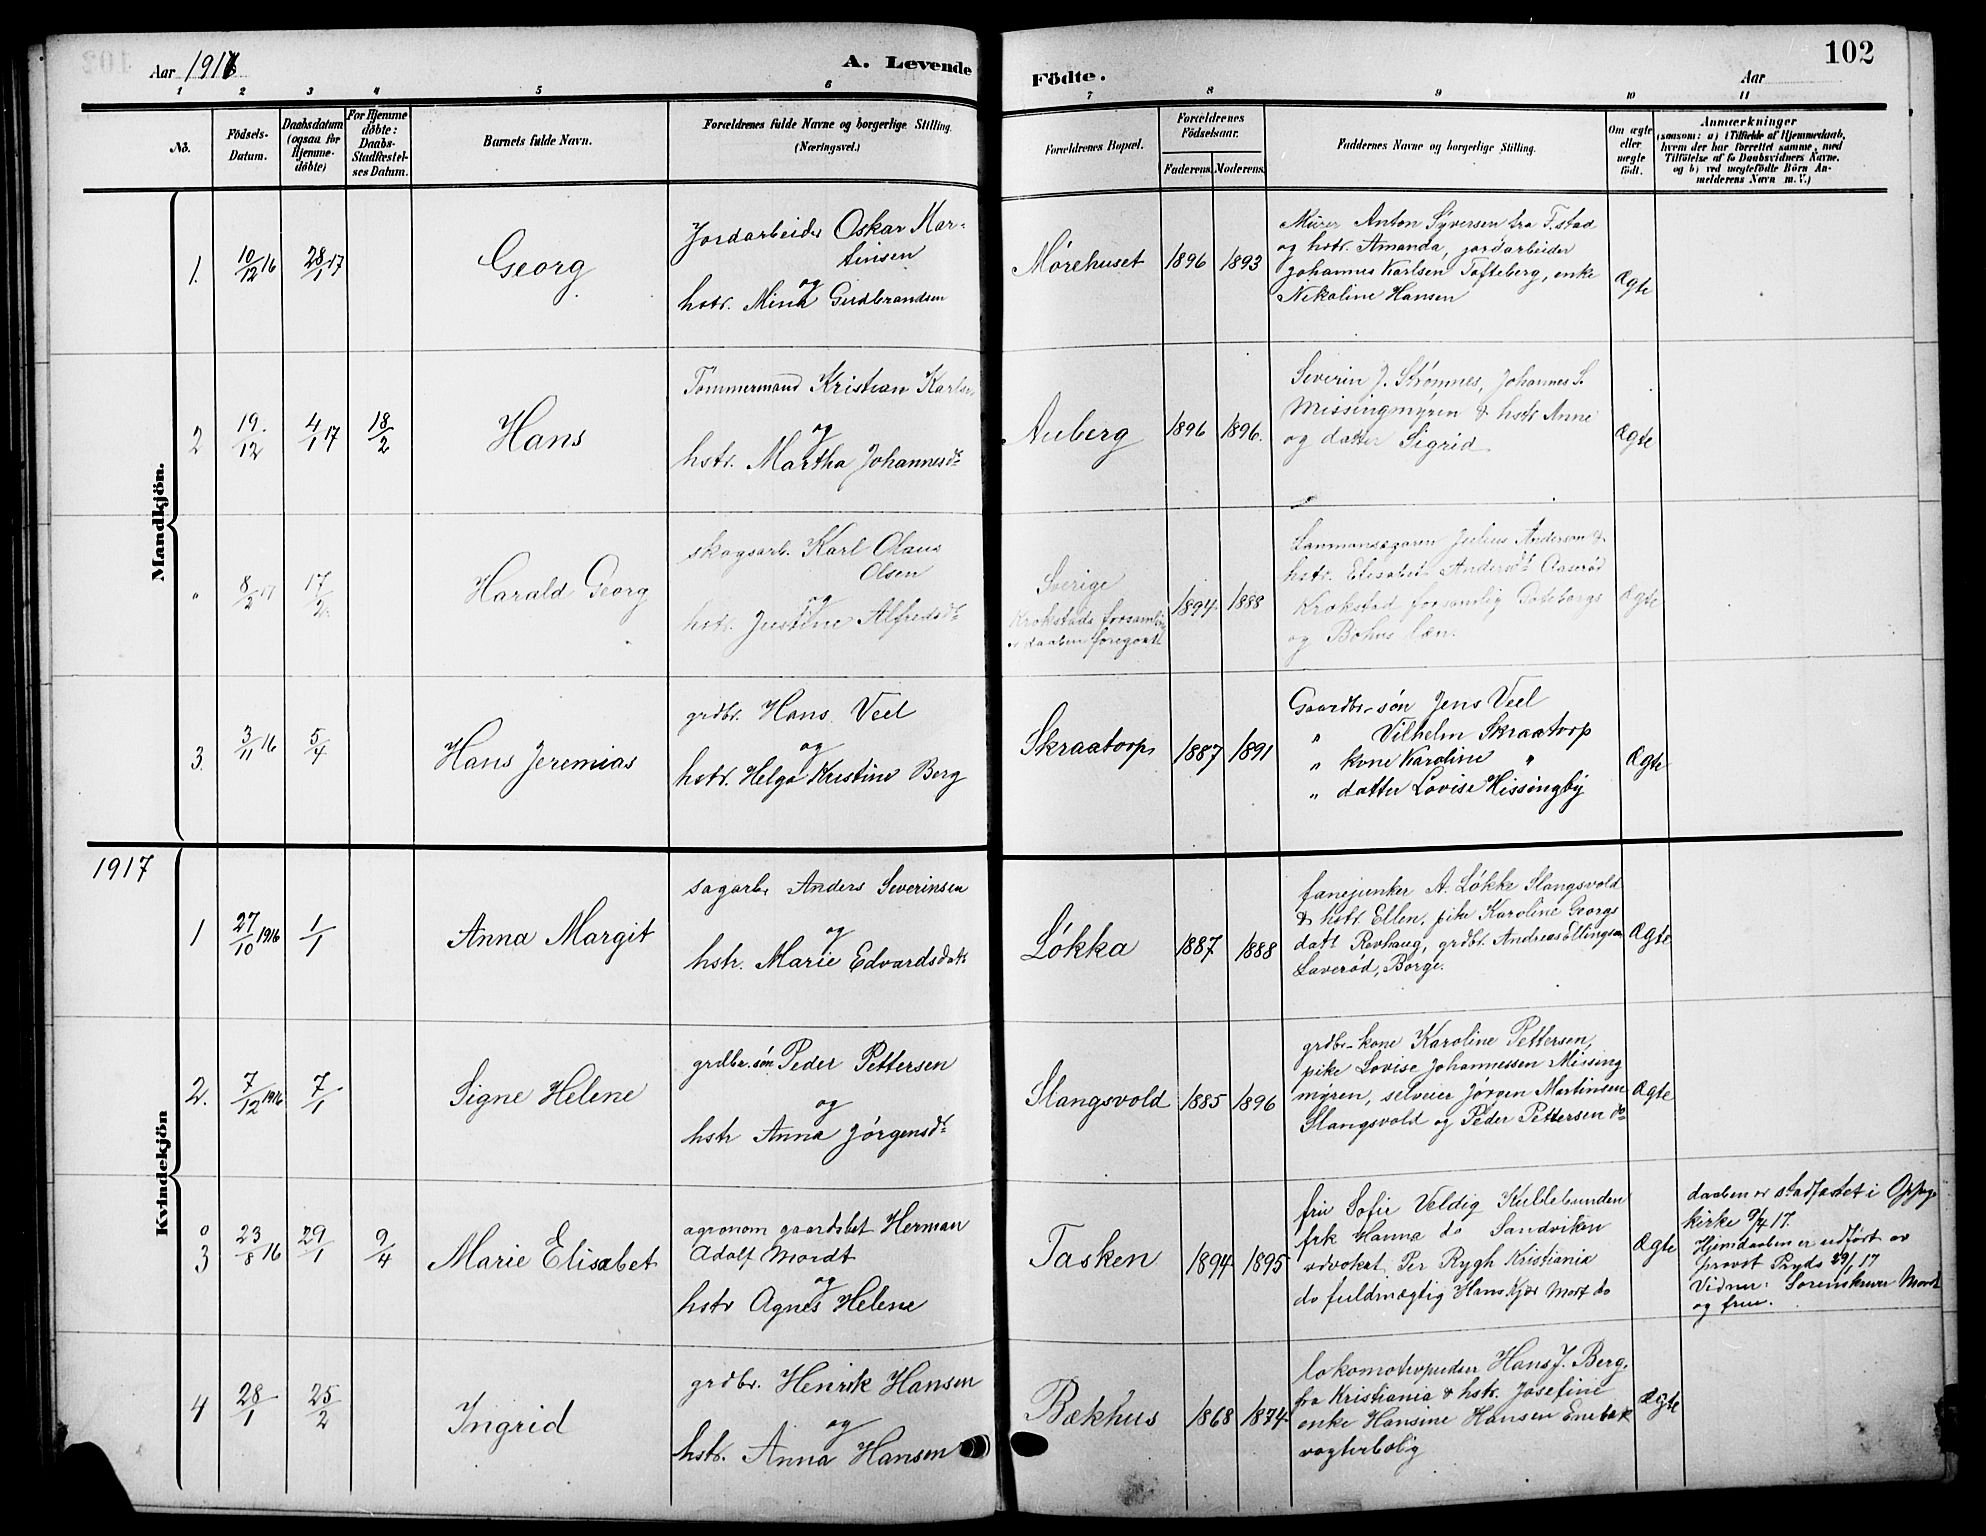 102
Aar 1917
A. Levende
Födte.
Aar
1 2 3 4 5 6 7 8 9 10 11
No.
Födsels-
Datum.
Daabsdatum
(ogsaa för
Hjemme-
döbte)
For Hjemme
döbte:
Daabs-
Stadfæstel-
ses Datum.
Barnets fulde Navn.
Forældrenes fulde Navne og borgerlige Stilling.
(Næringsvei.)
Forældrenes Bopæl.
Forældrenes
Födselsaar.
Faderens.
Moderens.
Faddernes Navne og borgerlige Stilling.
Om ægte
eller
uægte
födt.
Anmærkninger
(saasom: a) i Tilfælde af Hjemmedaab,
hvem der har forrettet samme, med
Tilföielse af to Daabsvidners Navne.
og b) ved uægtefödte Börn An-
melderens Navn m. V.)
Mandkjön.
1. 10/12 16 28/1 17 Georg
Jordarbeider Oskar Mar-
tinsen
og
hstr. Mina Gudbrandsen
Mørehuset 1896 1893
Murer Anton Syversen fra F.stad
og hstr. Amanda, jordarbeider
Johannes Karlsen Tofteberg, enke
Nikoline Hansen
Ægte
2 19/12 4/1 17 18/2 Hans
Tømmermand Kristian Karlsen
og
hstr. Martha Johannesdt
Auberg 1896 1896.
Severin J. Strømnes, Johannes S.
Missingmyren & hstr Anne
og datter Sigrid
Ægte
" 8/2 17 17/2. Harald Georg
skogsarb. Karl Olaus
Olsen
og
hstr. Justine Alfredsdt
Sverige
Krokstads forsamling
er daaben foregaat
1894 1888
Lanmansegaren Julius Anderson &
hstr. Elisabet Andersdt Aaserød
Krokstad forsamlig Gøteborgs
og Bohus Læn.
Ægte
3. 3/11 16 5/4 Hans Jeremias
grdbr. Hans Veel
og
hstr. Helga Kristine Berg
Skraatorp 1887 1891
Gaardbr. søn Jens Veel
" Vilhelm Skraatorp
" kone Karoline "
" datter Lovise Missingby
Ægte
1917
Kvindekjön
1 27/10 1916 1/1 Anna Margit
sagarb. Anders Severinsen
og
hstr. Marie Edvardsdatt
Løkka 1887 1888
fanejunker A. Løkke Slangsvold
& hstr. Ellen, pike Karoline Georgs
datt Revhaug, grdbr. Andreas Ellingsen
Laverød, Borge.
Ægte
2. 7/12 1916 7/1 Signe Helene
grdbr. søn Peder Pettersen
og
hstr Anna Jørgensdt
Slangsvold 1885 1896
grdbr-kone Karoline Pettersen,
pike Lovise Johannessen Missing
myren, selveier Jørgen Martinsen
Slangsvold og Peder Pettersen do
Ægte
3 23/8 16 29/1 9/4 Marie Elisabet
agronom gaardsbst Herman
Adolf Mordt
og
hstr Agnes Helene
Tasken 1894 1895
fru Sofie Veldig Kullebunden
frk Hanna do Sandviken
advokat Per Rygh Kristiania
do fuldmægtig Hans Kjær Mort do
Ægte
daaben er stadfæstet i
kirke 9/4 17.
Hjemdaaben er udført av
provst Pryds 29/1 17
Vidner: Sorenskriver Mordt
og frue.
4 28/1 25/2 Ingrid
grdbr. Henrik Hansen
og
hstr. Anna Hansen
Bækhus 1868 1874
lokomotivpudser Hans J. Berg
fra Kristiania & hstr. Josefine
enke Hansine Hansen Enebak
vogterbolig
Ægte